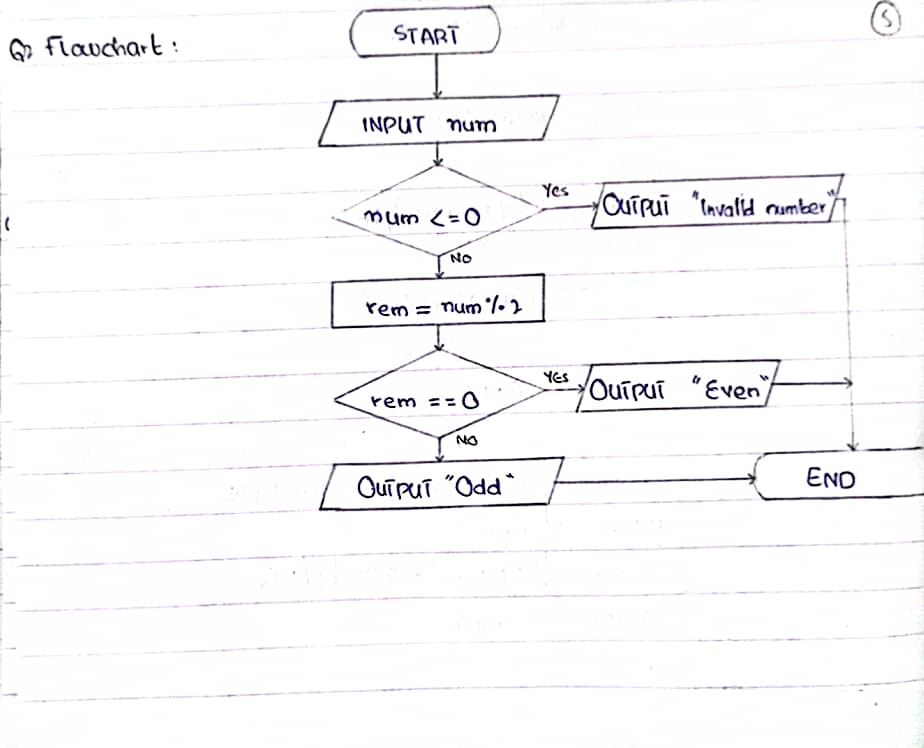 5
Q2 Flowchart :
START
INPUT num
num <=0
Yes
OUTPUT "Invalid number"
NO
rem = num % 2
rem ==0
YES
OUTPUT "Even"
NO
OUTPUT "Odd"
END